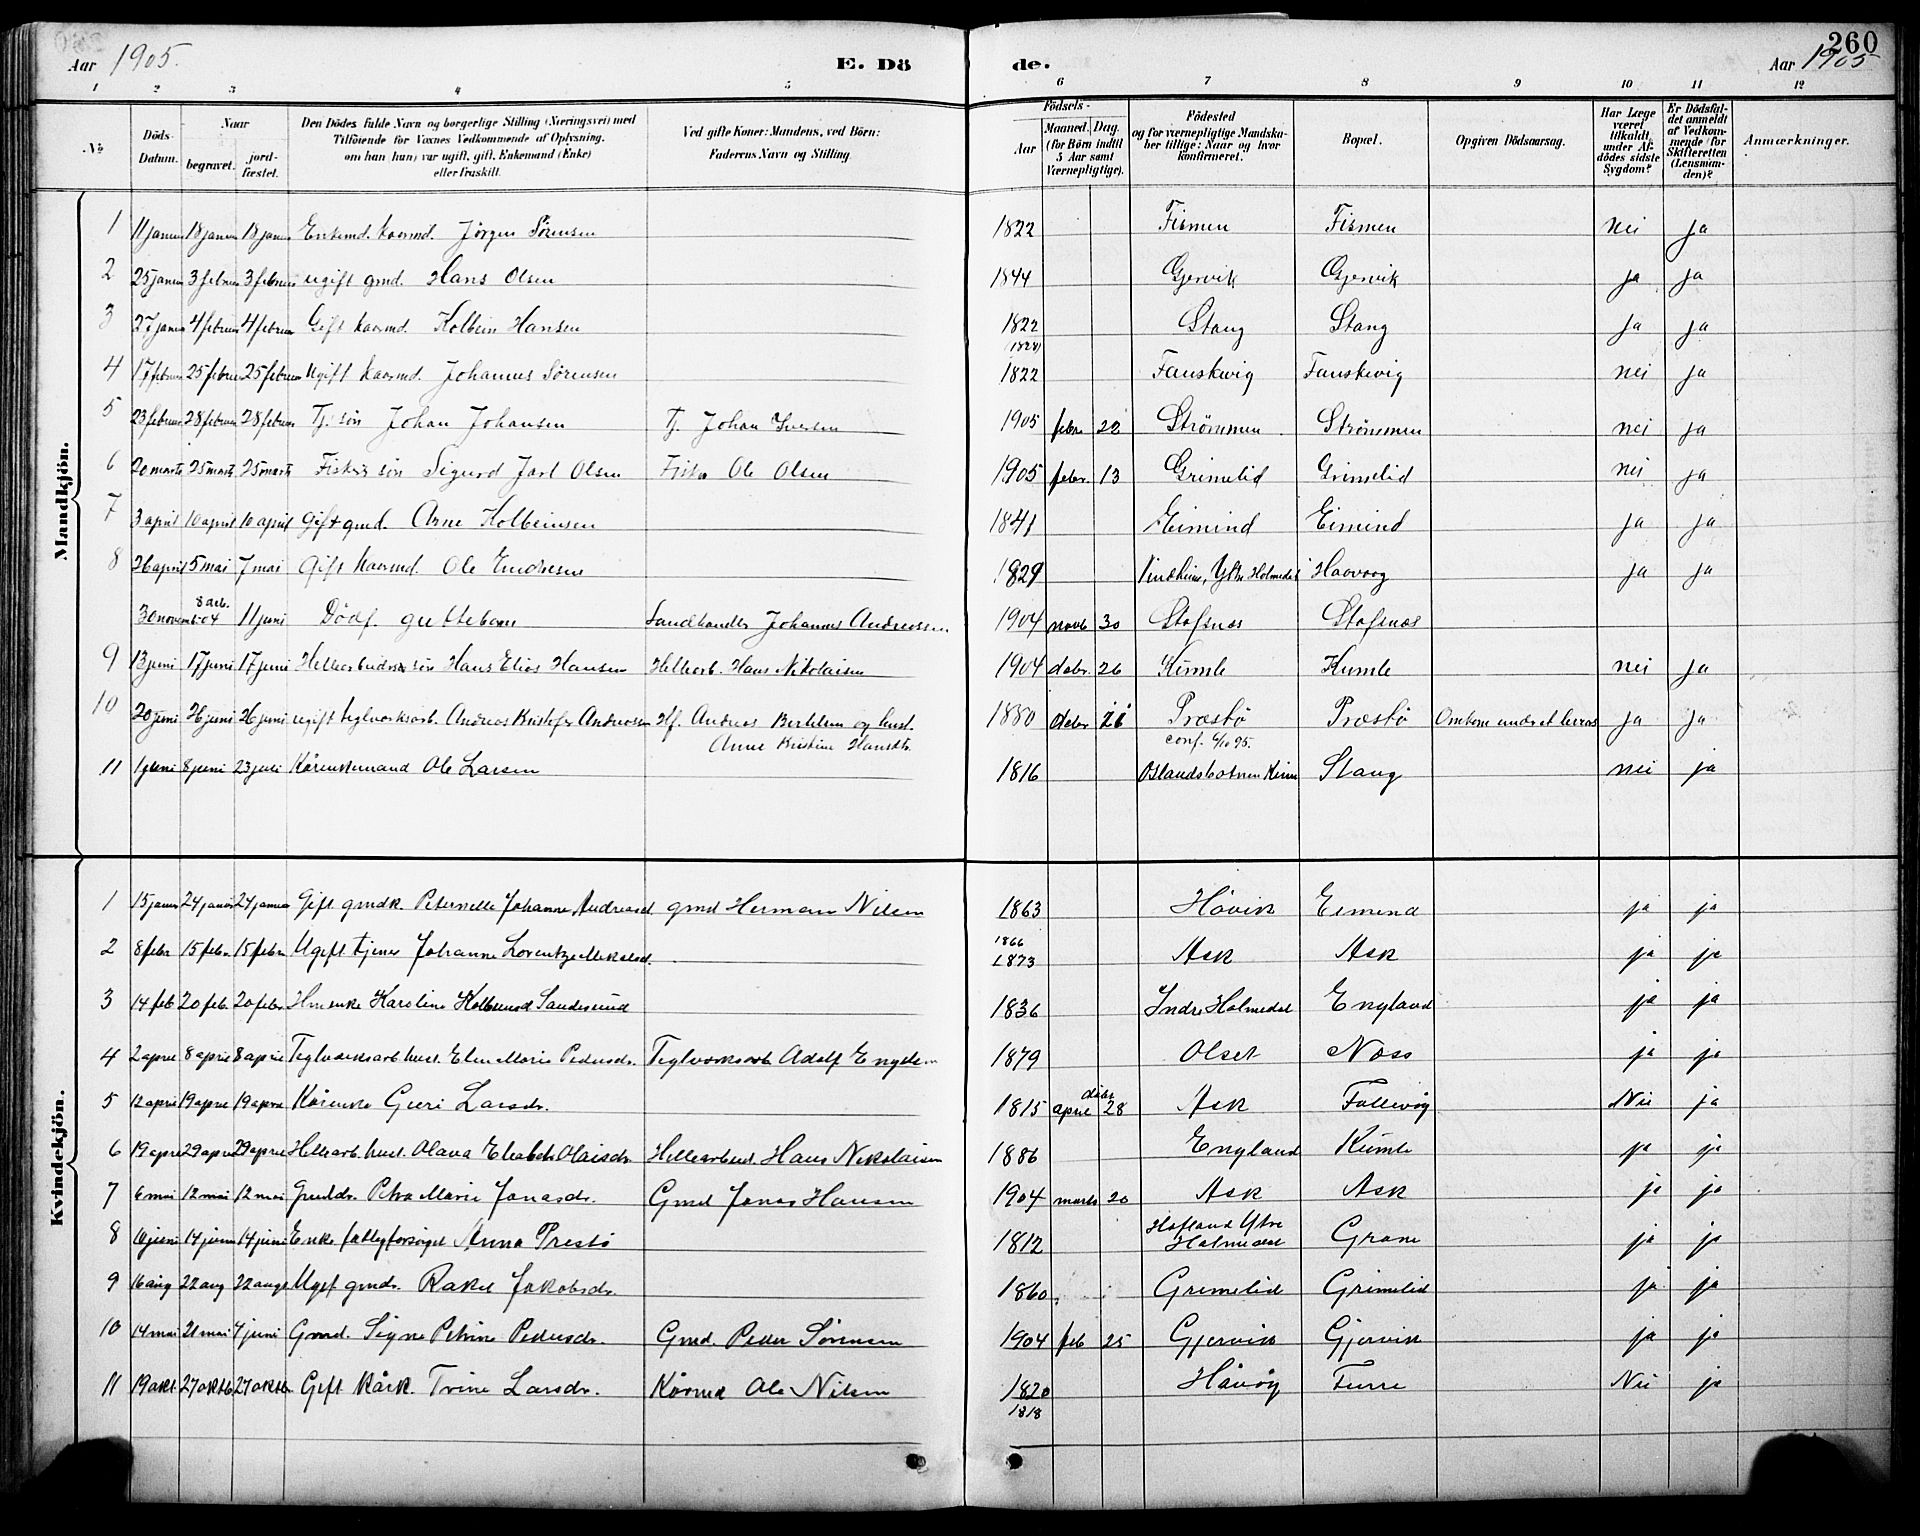 260
Aar 1905. E. Dö de. Aar 1905
1 2 3 4 5 6 7 8 9 10 11 12
No Döds-Datum. Naar begravet. jordfæstet. Den Dödes fulde Navn og borgerlige Stilling (Næringsvei) med Tilföiende for Voxnes Vedkommende af Oplysning, om han (hun) var ugift, gift, Enkemand (Enke) eller fraskilt. Ved gifte Koner: Mandens, ved Börn: Faderens Navn og Stilling. Födsels- Aar Maaned. Dag. (for Börn indtil 5 Aar samt Værnepligtige). Födested og for værnepligtige Mandskaber tillige: Naar og hvor konfirmeret. Bopæl. Opgiven Dödsaarsag. Har Læge været tilkaldt under Afdödes sidste Sygdom? Er Dödsfaldet anmeldt af Vedkommende for Skifteretten (Lensmanden)? Anmærkninger.
Mandkjön.
1 11 januar 18 januar 18 januar Enkemd. kaarmd. Jörgen Sörensen 1822 Fismen Fismen nei ja
2 25 januar 3 februar 3 februar ugift gmd. Hans Olsen 1844 Gjervik Gjervik ja ja
3 27 januar 4 februar 4 februar Gift kaarmd. Kolbein Hansen 1822 Stang Stang ja ja
(1828)
4 17 februar 25 februar 25 februar Ugift kaarmd. Johannes Sörensen 1822 Fauskevig Fauskevig nei ja
5 23 februar 28 februar 28 februar Tj. sön Johan Johansen Tj. Johan Iversen 1905 febr. 22 Strömmen Strömmen nei ja
6 20 marts 25 marts 25 marts Fiskers sön Sigurd Jarl Olsen Fisker Ole Olsen 1905 febr. 13 Grimelid Grimelid nei ja
7 3 april 10 april 10 april Gift gmd. Arne Kolbeinsen 1841 Eimind Eimind ja ja
8 26 april 5 mai 7 mai Gift kaarmd. Ole Endresen 1829 Vindheim, Ytre Holmedal Haavaag ja ja
30 novemb. 04 8 deb. 11 juni Dödf. guttebarn Landhandler Johannes Andreassen 1904 novb 30 Stafsnæs Stafsnæs
9 13 juni 17 juni 17 juni Hellearbeiders sön Hans Elias Hansen Hellearb. Hans Nikolaisen 1904 debr. 26 Kumle Kumle nei ja
10 20 juni 26 juni 26 juni ugift teglverksarb. Andreas Kristofer Andreasen Hf. Andreas Bertelsen og hust. 1880 debr 21 Præstö Præstö Omkom under et leirras ja ja
Anne Kristine Hansdtr. conf. 6/10 95.
11 1 juni 8 juni 23 juli Kårenkemand Ole Larsen 1816 Oslandsbotnen Kirvn Stang nei ja
Kvindekjön.
1 15 januar 24 januar 24 januar Gift gmdk. Peternelle Johanne Andreasd. gmd Herman Nilsen 1863 Hövik Eimind ja ja
2 8 febr 15 febr. 15 febr. Ugift tjener Johanne Lorentze Mikalsd. 1866 1873 Ask Ask ja ja
3 14 feb 20 feb. 20 febr. Hmenke Karoline Kolbeinsd Sandesund 1836 Indre Holmedal Engeland ja ja
4 2 april 8 april 8 april Teglverksarb hust. Elen Marie Pedersdr. Teglverksarb Adolf Engels 1879 Olset Næss ja ja
5 12 april 19 april 19 april Kårenke Guri Larsdr. 1815 april døbt 28 Ask Fallevåg Nei ja
6 19 april 29 april 29 april Hellearb. hust. Olava Elisabet Olaisdr. Hellearbeid. Hans Nikolaisen 1886 Engeland Kumle ja ja
7 6 mai 12 mai 12 mai Gmddr. Petra Marie Jonasdr. Gmd Jonas Hansen 1904 marts 20 Ask Ask ja ja
8 10 juni 14 juni 14 juni Enke fattigforsörget Anna Prestö 1812 Hafland Ytre Holmedal Grane ja ja
9 16 aug 22 aug 22 aug Ugift gmdr. Rakel Jakobsdr. 1860 Grimelid Grimelid ja ja
10 14 mai 21 mai 4 juni Gmd. Signe Petrine Pedersdr. Gmd. Peder Sörensen 1904 feb 25 Gjervik Gjervik ja ja
11 19 okt. 27 oktb 27 oktb Gift kårk. Trine Larsdr. Kårmd Ole Nilsen 1820 Håvåg Furre Nei ja
1818